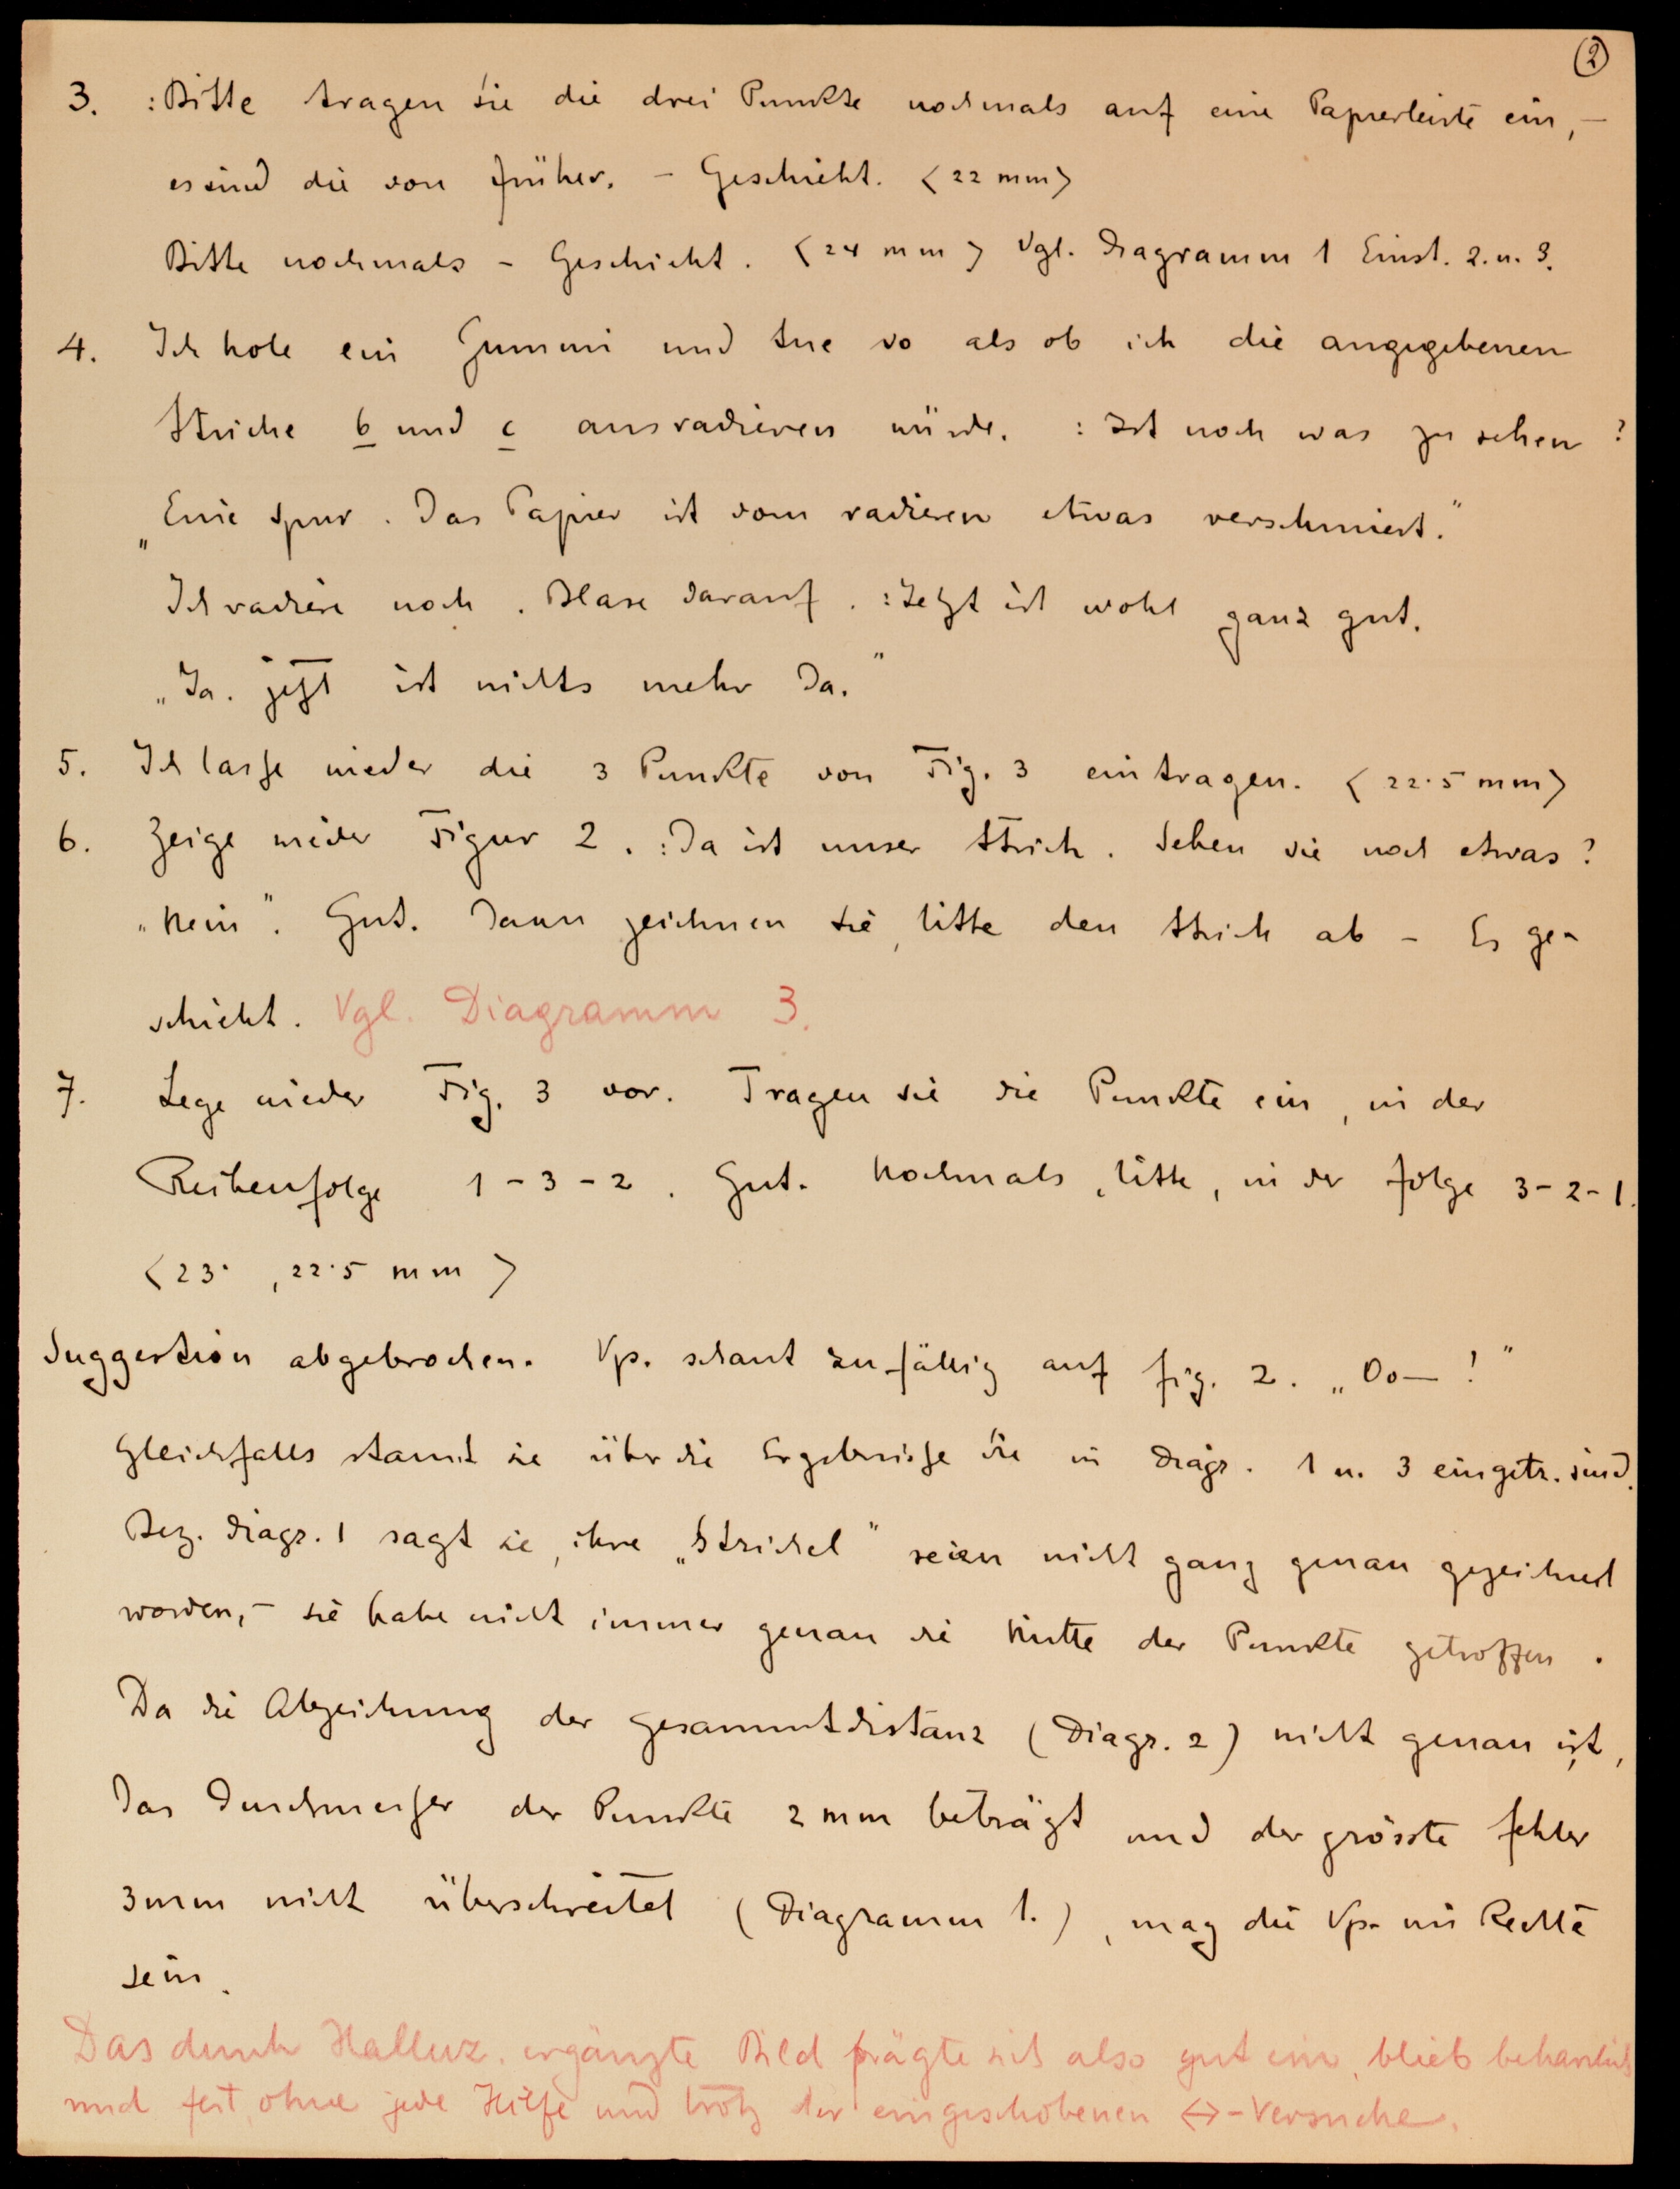 2
3. : Bitte tragen Sie die drei Punkte nochmals auf eine Papierleiste ein, –
es sind die von früher. – Geschieht. < 22 mm >
Bitte nochmals – Geschieht. < 24 mm > Vgl. Diagramm 1 Einst. 2. u. 3.
4. Ich hole ein Gummi und tue so als ob ich die angegebenen
Striche b und c ausradieren würde. : Ist noch was zu sehen ?
„Eine Spur. Das Papier ist vom radieren etwas verschmiert.“
Ich radiere noch. Blase darauf. : Jetzt ist wohl ganz gut.
„Ja. jetzt ist nichts mehr da.“
5. Ich lasse wieder die 3 Punkte von Fig. 3 eintragen. < 22·5 mm >
6. Zeige wieder Figur 2. : Da ist unser Strich. Sehen sie noch etwas ?
„Nein“. Gut. Dann zeichnen Sie, bitte den Strich ab – Es ge-
schieht. Vgl. Diagramm 3.
7. Lege wieder Fig. 3 vor. Tragen sie die Punkte ein, in der
Reihenfolge 1 – 3 – 2. Gut. Nochmals, bitte, in der folge 3 – 2 – 1.
< 23· , 22·5 mm >
Suggestion abgebrochen. Vp. schaut zufällig auf fig. 2. „Oo— !“
Gleichfalls staunt sie über die Ergebnisse die in Diagr. 1 u. 3 eingetr. sind.
Bez. Diagr. 1 sagt sie, ihre „Strichel“ seien nicht ganz genau gezeichnet
worden, – sie habe nicht immer genau die Mitte der Punkte getroffen.
Da die Abzeichnung der Gesammtdistanz (Diagr. 2) nicht genau ist,
das Durchmesser der Punkte 2 mm beträgt und der grösste fehler
3 mm nicht überschreitet (Diagramm 1.), mag die Vp. im Rechte
sein.
Das durch Halluz. ergänzte Bild prägte sich also gut ein, blieb beharrlich
und fest, ohne jede Hilfe und trotz der eingeschobenen <->-Versuche.